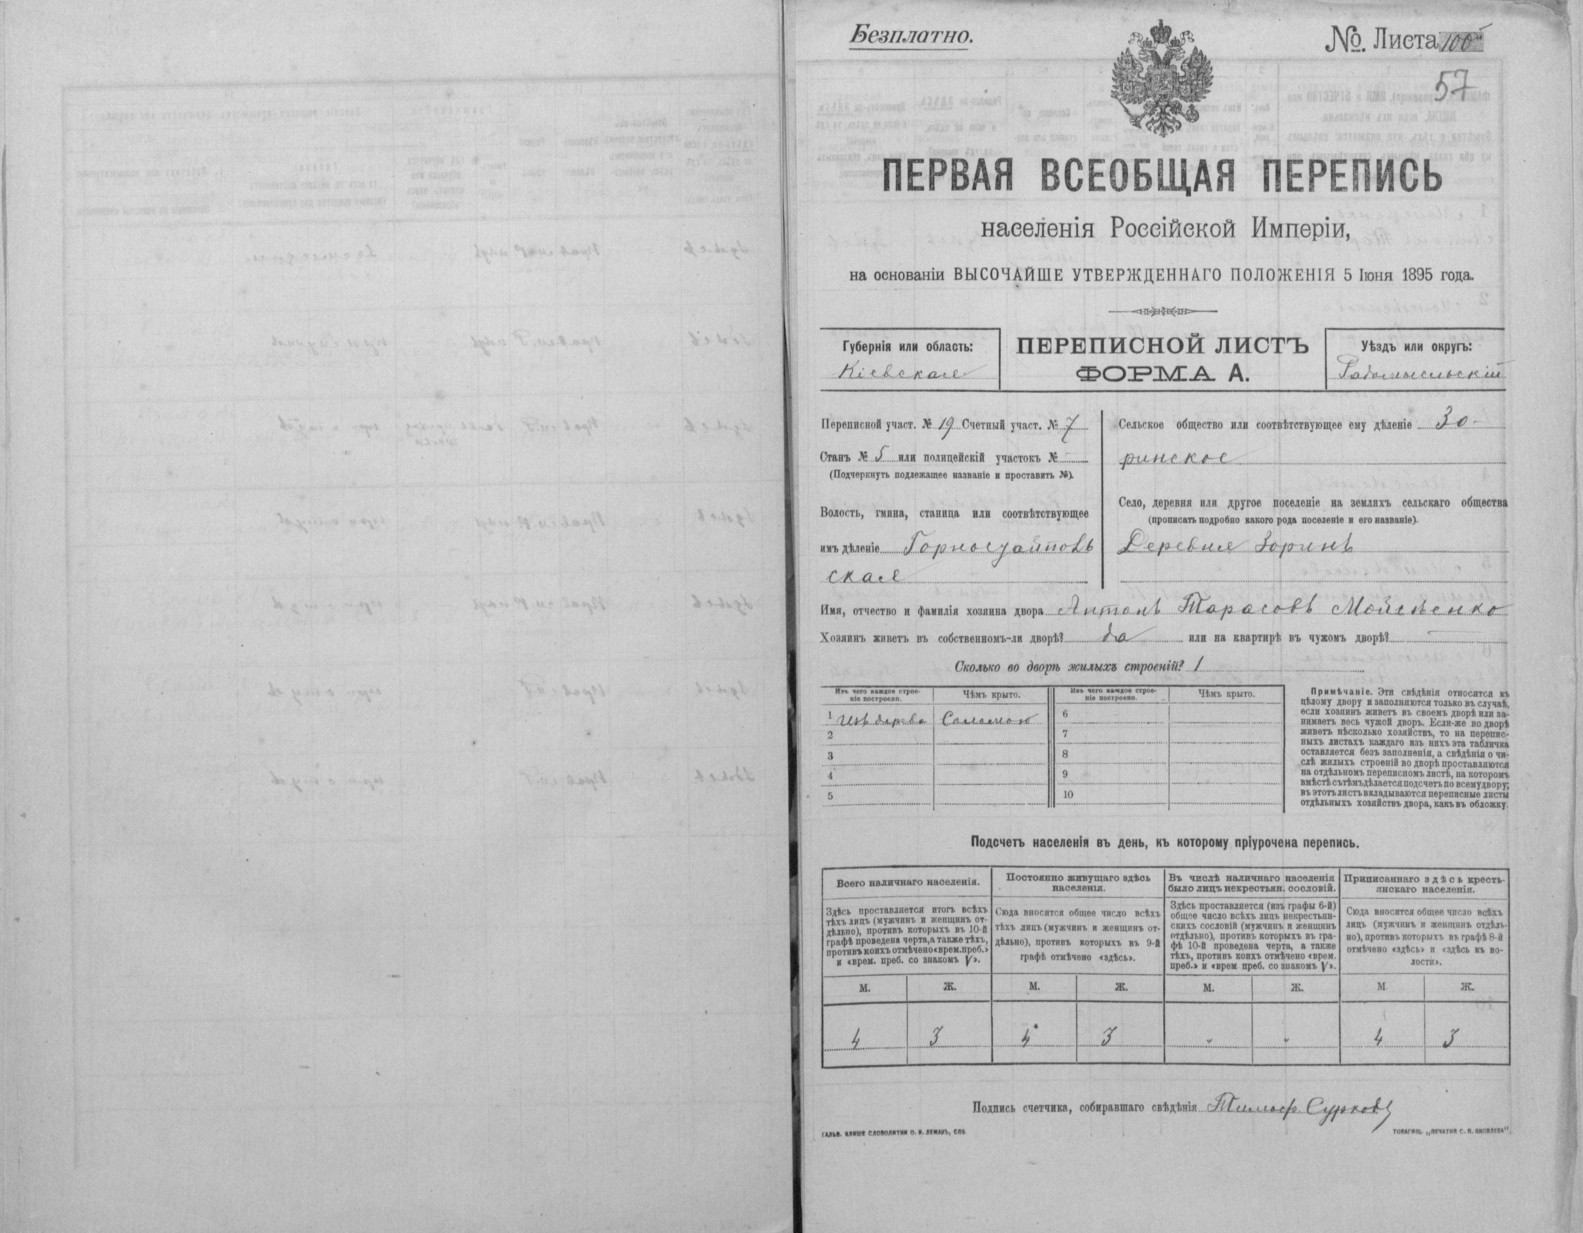 Безплатно.
№ Листа 100
57
ПЕРВАЯ ВСЕОБЩАЯ ПЕРЕПИСЬ
населенія Россійской Имперіи,
на основаніи ВЫСОЧАЙШЕ УТВЕРЖДЕННАГО ПОЛОЖЕНІЯ 5 Іюня 1895 года.
Губернія или область:
Кіевская
ПЕРЕПИСНОЙ ЛИСТЪ
ФОРМА А.
Уѣздъ или округъ:
Радомысльскій
Переписной участ. № 19 Счетный участ. № 7
Станъ № 5 или полицейскій участокъ № —
(Подчеркнуть подлежащее названіе и проставить №).
Волость, гмина, станица или соотвѣтствующее
имъ дѣленіе Горностайпов
ская
Сельское общество или соотвѣтствующее ему дѣленіе Зо-
ринское
Село, деревня или другое поселеніе на земляхъ сельскаго общества
(прописать подробно какого рода поселеніе и его названіе).
Деревня Зоринъ
Имя, отчество и фамилія хозяина двора Антонъ Тарасовъ Мойсѣенко
Хозяинъ живетъ въ собственномъ-ли дворѣ? да или на квартирѣ въ чужомъ дворѣ? —
Сколько во дворѣ жилыхъ строеній? 1
Изъ чего каждое строе-
ніе построено.
Чѣмъ крыто.
Изъ чего каждое строе-
ніе построено.
Чѣмъ крыто.
1 Изъ дерева Соломою
2
3
4
5
6
7
8
9
10
Примѣчаніе. Эти свѣдѣнія относятся къ
цѣлому двору и заполняются только въ случаѣ,
если хозяинъ живетъ въ своемъ дворѣ или за-
нимаетъ весь чужой дворъ. Если-же во дворѣ
живетъ нѣсколько хозяйствъ, то на перепис-
ныхъ листахъ каждаго изъ нихъ эта табличка
оставляется безъ заполненія, а свѣдѣнія о чи-
слѣ жилыхъ строеній во дворѣ проставляются
на отдѣльномъ переписномъ листѣ, на которомъ
вмѣстѣ съ тѣмъ дѣлается подсчетъ по всему двору;
въ этотъ листъ вкладываются переписные листы
отдѣльныхъ хозяйствъ двора, какъ въ обложку.
Подсчетъ населенія въ день, къ которому пріурочена перепись.
Всего наличнаго населенія.
Здѣсь проставляется итогъ всѣхъ
тѣхъ лицъ (мужчинъ и женщинъ от-
дѣльно), противъ которыхъ въ 10-й
графѣ проведена черта, а также тѣхъ,
противъ коихъ отмѣчено «врем. преб.»
и «врем. преб. со знакомъ V».
Постоянно живущаго здѣсь
населенія.
Сюда вносится общее число всѣхъ
тѣхъ лицъ (мужчинъ и женщинъ от-
дѣльно), противъ которыхъ въ 9-й
графѣ отмѣчено «здѣсь».
Въ числѣ наличнаго населенія
было лицъ некрестьян. сословій.
Здѣсь проставляется (изъ графы 6-й)
общее число всѣхъ лицъ некрестьян-
скихъ сословій (мужчинъ и женщинъ
отдѣльно), противъ которыхъ въ гра-
фѣ 10-й проведена черта, а также
тѣхъ, противъ коихъ отмѣчено «врем.
преб.» и «врем преб. со знакомъ V».
Приписаннаго здѣсь кресть-
янскаго населенія.
Сюда вносится общее число всѣхъ
лицъ (мужчинъ и женщинъ отдѣль-
но), противъ которыхъ въ графѣ 8-й
отмѣчено «здѣсь» и «здѣсь къ во-
лости».
М. Ж. М. Ж. М. Ж. М Ж.
4 3 4 3 " " 4 3
Подпись счетчика, собиравшаго свѣдѣнія Тимоф. Сурков
ГАЛЬВ. КЛИШЕ СЛОВОЛИТНИ О. И. ЛЕМАНЪ, СПБ.
ТОВАРИЩ. „ПЕЧАТНЯ С. П. ЯКОВЛЕВА".